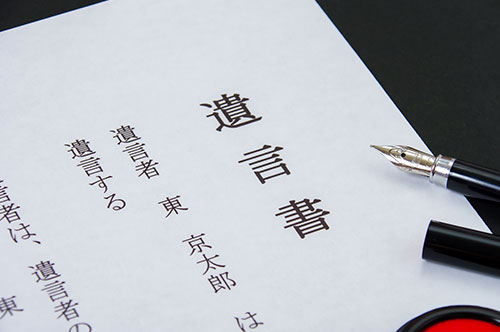 遺言書
遺言者 東 京太郎 は
遺言する
言者は、遺言者の
東